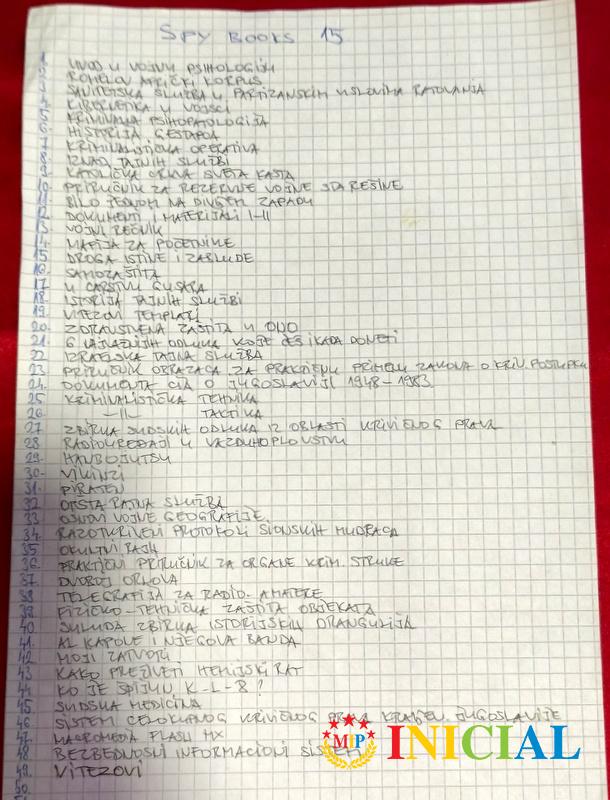 SPY BOOKS 15
1. UVOD U VOJNU PSIHOLOGIJU
2. ROMELOV AFRIČKI KORPUS
3. SANITETSKA SLUŽBA U PARTIZANSKIM USLOVIMA RATOVANJA
4. KIBERNETIKA U VOJSCI
5. KRIMINALNA PSIHOPATOLOGIJA
6. HISTORIJA GESTAPOA
7. KRIMINALISTIČKA OPERATIVA
8. IZNAD TAJNIH SLUŽBI
9. KATOLIČKA CRKVA SVETA KASTA
10. PRIRUČNIK ZA REZERVNE VOJNE STAREŠINE
11. BILO JEDNOM NA DIVLJEM ZAPADU
12. DOKUMENTI I MATERIJALI I-II
13. VOJNI REČNIK
14. MAFIJA ZA POČETNIKE
15. DROGA ISTINE I ZABLUDE
16. SAMOZAŠTITA
17. U CARSTVU GUSARA
18. ISTORIJA TAJNIH SLUŽBI
19. VITEZOVI TEMPLARI
20. ZDRAVSTVENA ZAŠTITA U ONO
21. 6 NAJVAŽNIJIH ODLUKA KOJE ĆEŠ IKADA DONETI
22. IZRAELSKA TAJNA SLUŽBA
23. PRIRUČNIK OBRAZACA ZA PRAKTIČNU PRIMENU ZAKONA O KRIV. POSTUPKU
24. DOKUMENTA CIA O JUGOSLAVIJI 1948-1983
25. KRIMINALISTIČKA TEHNIKA
26. -II- TAKTIKA
27. ZBIRKA SUDSKIH ODLUKA IZ OBLASTI KRIVIČNOG PRAVA
28. RADIOUREĐAJI U VAZDUHOPLOVSTVU
29. HANBOJUTSU
30. VIKINZI
31. PIRATEN
32. OPŠTA RATNA SLUŽBA
33. OSNOVI VOJNE GEOGRAFIJE
34. RAZOTKRIVENI PROTOKOLI SIONSKIH MUDRACA
35. OKULTNI RAJH
36. PRAKTIČNI PRIRUČNIK ZA ORGANE KRIM. STRUKE
37. DVOBOJ ORLOVA
38. TELEGRAFIJA ZA RADIO-AMATERE
39. FIZIČKO-TEHNIČKA ZAŠTITA OBJEKATA
40. SULUDA ZBIRKA ISTORIJSKIH DRANGULIJA
41. AL KAPONE I NJEGOVA BANDA
42. MOJI ZATVORI
43. KAKO PREŽIVETI HEMIJSKI RAT
44. KO JE ŠPIJUN K-L-8?
45. SUDSKA MEDICINA
46. SISTEM CELOKUPNOG KRIVIČNOG PRAVA KRALJEV. JUGOSLAVIJE
47. MACROMEDIA FLASH MX
48. BEZBEDNOSNI INFORMACIONI SISTEMI
49. VITEZOVI
50.
MIP INICIAL